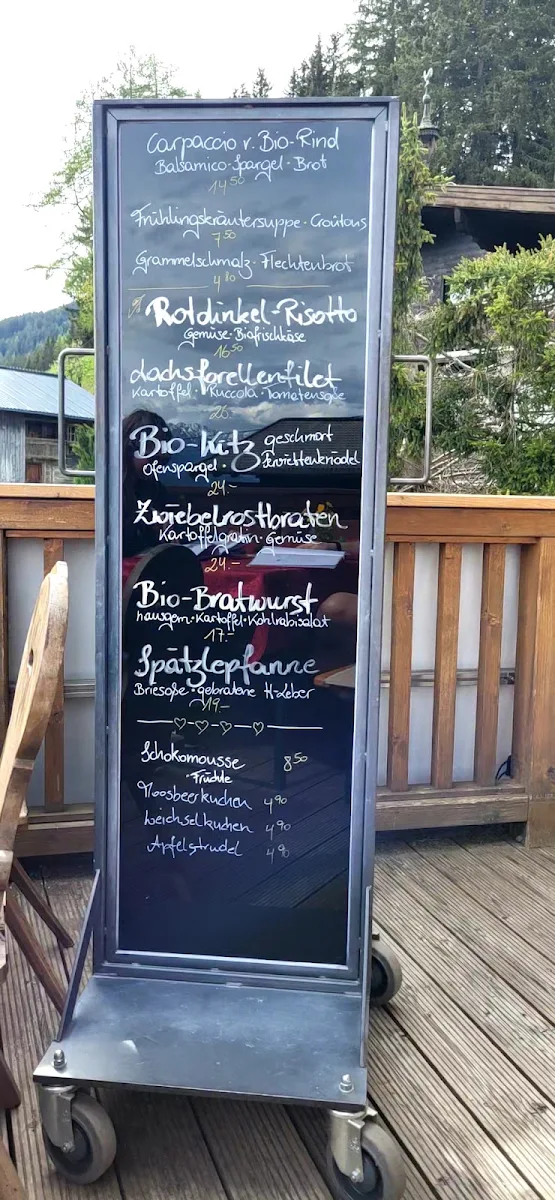 Carpaccio v. Bio-Rind
Balsamico-Spargel · Brot
14⁵⁰
Frühlingskräutersuppe · Croûtons
7⁵⁰
Grammelschmalz · Flechtenbrot
4⁸⁰
Rotdinkel-Risotto
Gemüse · Biofrischkäse
16⁵⁰
dachsforellenfilet
Kartoffel · Ruccola · Tomatensoße
26.-
Bio-Kitz geschmort
Ofenspargel ·
24.-
Zwiebelrostbraten
Kartoffelgratin · Gemüse
24.-
Bio-Bratwurst
hausgem. · Kartoffel · Kohlrabisalat
17.-
Spätzlepfanne
Briesoße · gebratene H-Leber
19.-
Schokomousse 8⁵⁰
· Früchte
Moosbeerkuchen 4⁹⁰
Weichselkuchen 4⁹⁰
Apfelstrudel 4⁹⁰